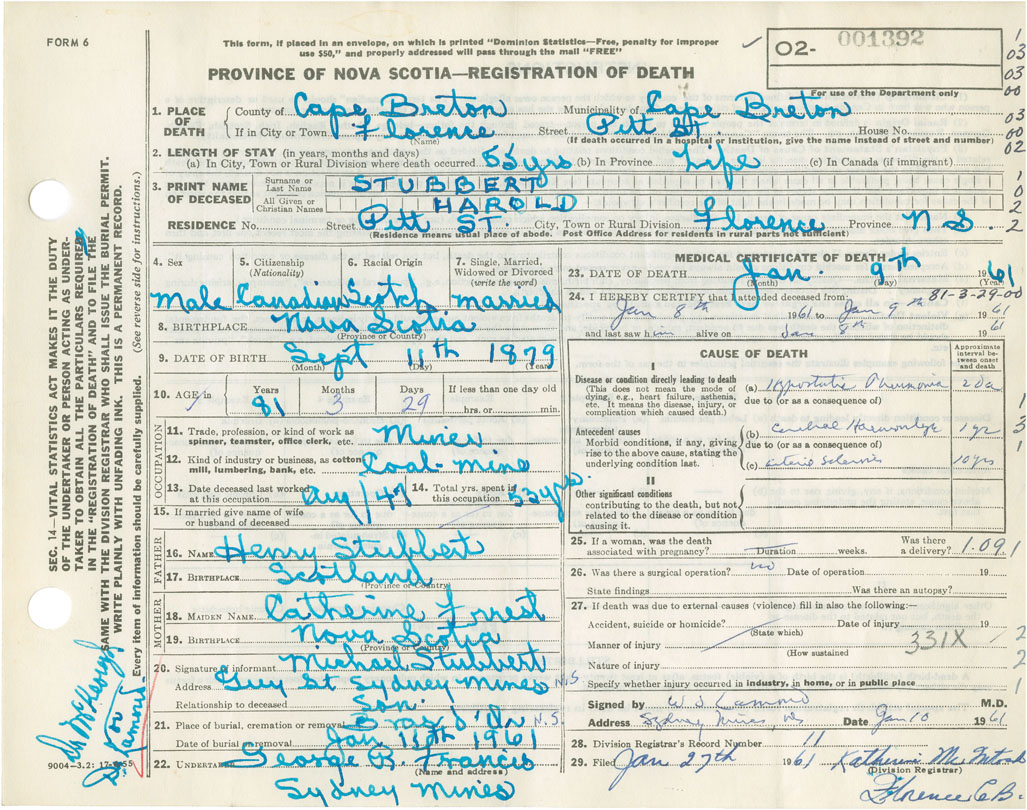 FORM 6
This form, if placed in an envelope, on which is printed "Dominion Statistics—Free, penalty for improper
use $50," and properly addressed will pass through the mail "FREE"
O2- 001392
For use of the Department only
PROVINCE OF NOVA SCOTIA—REGISTRATION OF DEATH
1 03 03 00 03 00 02
1. PLACE OF DEATH
County of Cape Breton Municipality of Cape Breton
If in City or Town Florence Street Pitt St. House No.
(Name) (If death occurred in a hospital or institution, give the name instead of street and number)
2. LENGTH OF STAY (in years, months and days)
(a) In City, Town or Rural Division where death occurred 55 yrs (b) In Province Life (c) In Canada (if immigrant)
3. PRINT NAME OF DECEASED
Surname or Last Name STUBBERT
All Given or Christian Names HAROLD
RESIDENCE No. Street Pitt ST. City, Town or Rural Division Florence Province N S.
(Residence means usual place of abode. Post Office Address for residents in rural parts not sufficient)
1 0 2 2
4. Sex 5. Citizenship (Nationality) 6. Racial Origin 7. Single, Married, Widowed or Divorced (write the word)
Male Canadian Scotch married
8. BIRTHPLACE Nova Scotia
(Province or Country)
9. DATE OF BIRTH Sept 11th 1879
(Month) (Day) (Year)
10. AGE in Years Months Days If less than one day old
81 3 29 hrs. or min.
OCCUPATION
11. Trade, profession, or kind of work as spinner, teamster, office clerk, etc. Miner
12. Kind of industry or business, as cotton mill, lumbering, bank, etc. Coal-mine
13. Date deceased last worked at this occupation Aug/47 14. Total yrs. spent in this occupation 53 yrs.
15. If married give name of wife or husband of deceased
FATHER
16. NAME Henry Stubbert
17. BIRTHPLACE Scotland
(Province or Country)
MOTHER
18. MAIDEN NAME Catherine Forrest
19. BIRTHPLACE Nova Scotia
(Province or Country)
20. Signature of informant Michael Stubbert
Address Guy St Sydney Mines N.S
Relationship to deceased Son.
21. Place of burial, cremation or removal Bras d'Or N.S.
Date of burial or removal Jan 11th 1961
22. UNDERTAKER George B. Francis
(Name and address)
Sydney Mines
MEDICAL CERTIFICATE OF DEATH
23. DATE OF DEATH Jan. 9th 1961
(Month) (Day) (Year)
24. I HEREBY CERTIFY that I attended deceased from: 81-3-29-00
Jan 8th 1961 to Jan 9th 1961
and last saw him alive on Jan 8th 1961
CAUSE OF DEATH
Approximate interval between onset and death
I
Disease or condition directly leading to death
(This does not mean the mode of dying, e.g., heart failure, asthenia, etc. It means the disease, injury, or complication which caused death.)
(a) Hypostatic Pneumonia 2 da
due to (or as a consequence of)
Antecedent causes
Morbid conditions, if any, giving rise to the above cause, stating the underlying condition last.
(b) Cerebral Haemorrhage 1 yr
due to (or as a consequence of)
(c) Arterio Sclerosis 10 yrs
II
Other significant conditions
contributing to the death, but not related to the disease or condition causing it.
1 3 1
25. If a woman, was the death associated with pregnancy? Duration weeks. Was there a delivery? 1.09.1
26. Was there a surgical operation? no Date of operation 19
State findings Was there an autopsy?
27. If death was due to external causes (violence) fill in also the following:—
Accident, suicide or homicide? Date of injury 19
(State which)
Manner of injury 331X 2
(How sustained
Nature of injury 2
Specify whether injury occurred in industry, in home, or in public place 1
Signed by M.D.
Address Sydney Mines NS Date Jan 10 1961
28. Division Registrar's Record Number 11
29. Filed Jan 27th 1961 Katherine McIntosh
(Division Registrar)
Florence C.B.
SEC. 14—VITAL STATISTICS ACT MAKES IT THE DUTY
OF THE UNDERTAKER OR PERSON ACTING AS UNDER-
TAKER TO OBTAIN ALL THE PARTICULARS REQUIRED
IN THE "REGISTRATION OF DEATH" AND TO FILE THE
SAME WITH THE DIVISION REGISTRAR WHO SHALL ISSUE THE BURIAL PERMIT.
WRITE PLAINLY WITH UNFADING INK. THIS IS A PERMANENT RECORD.
Every item of information should be carefully supplied. (See reverse side for instructions.)
9004—3.2: